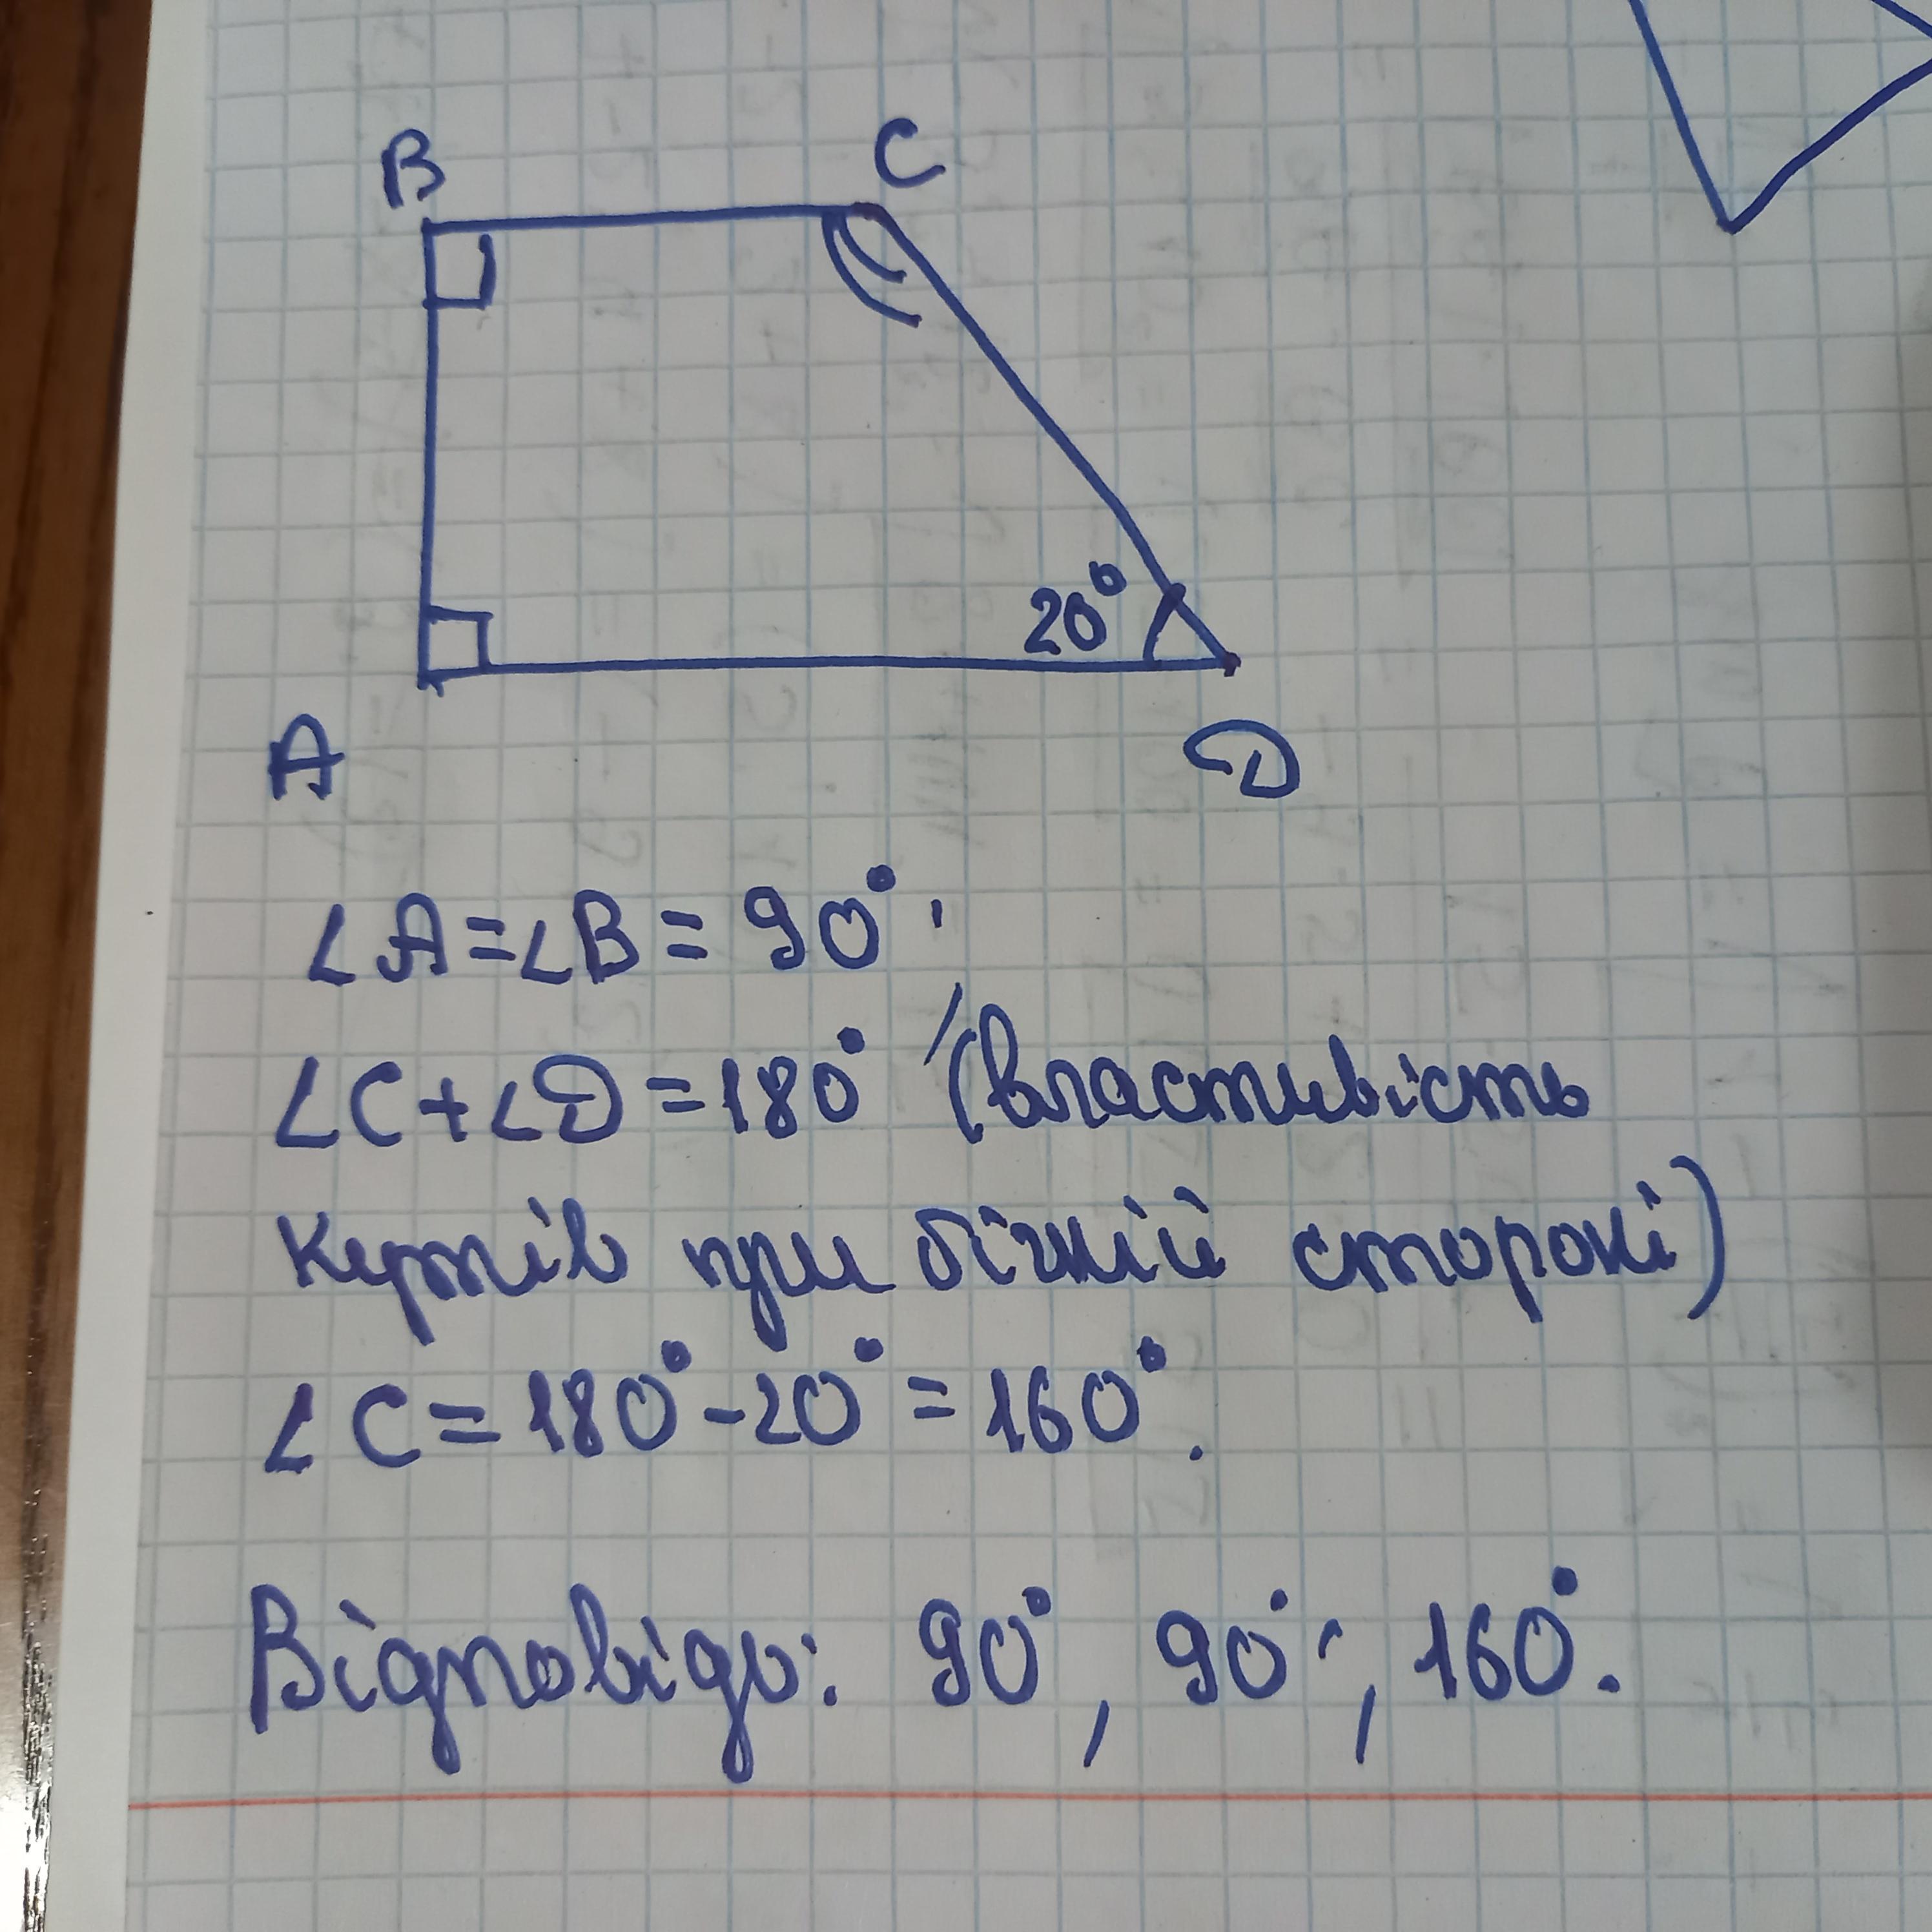 B C
20°
A D
∠A=∠B=90°.
∠C+∠D=180° (властивість
кутів при бічній стороні)
∠C=180°-20°=160°.
Відповідь: 90°, 90°, 160°.